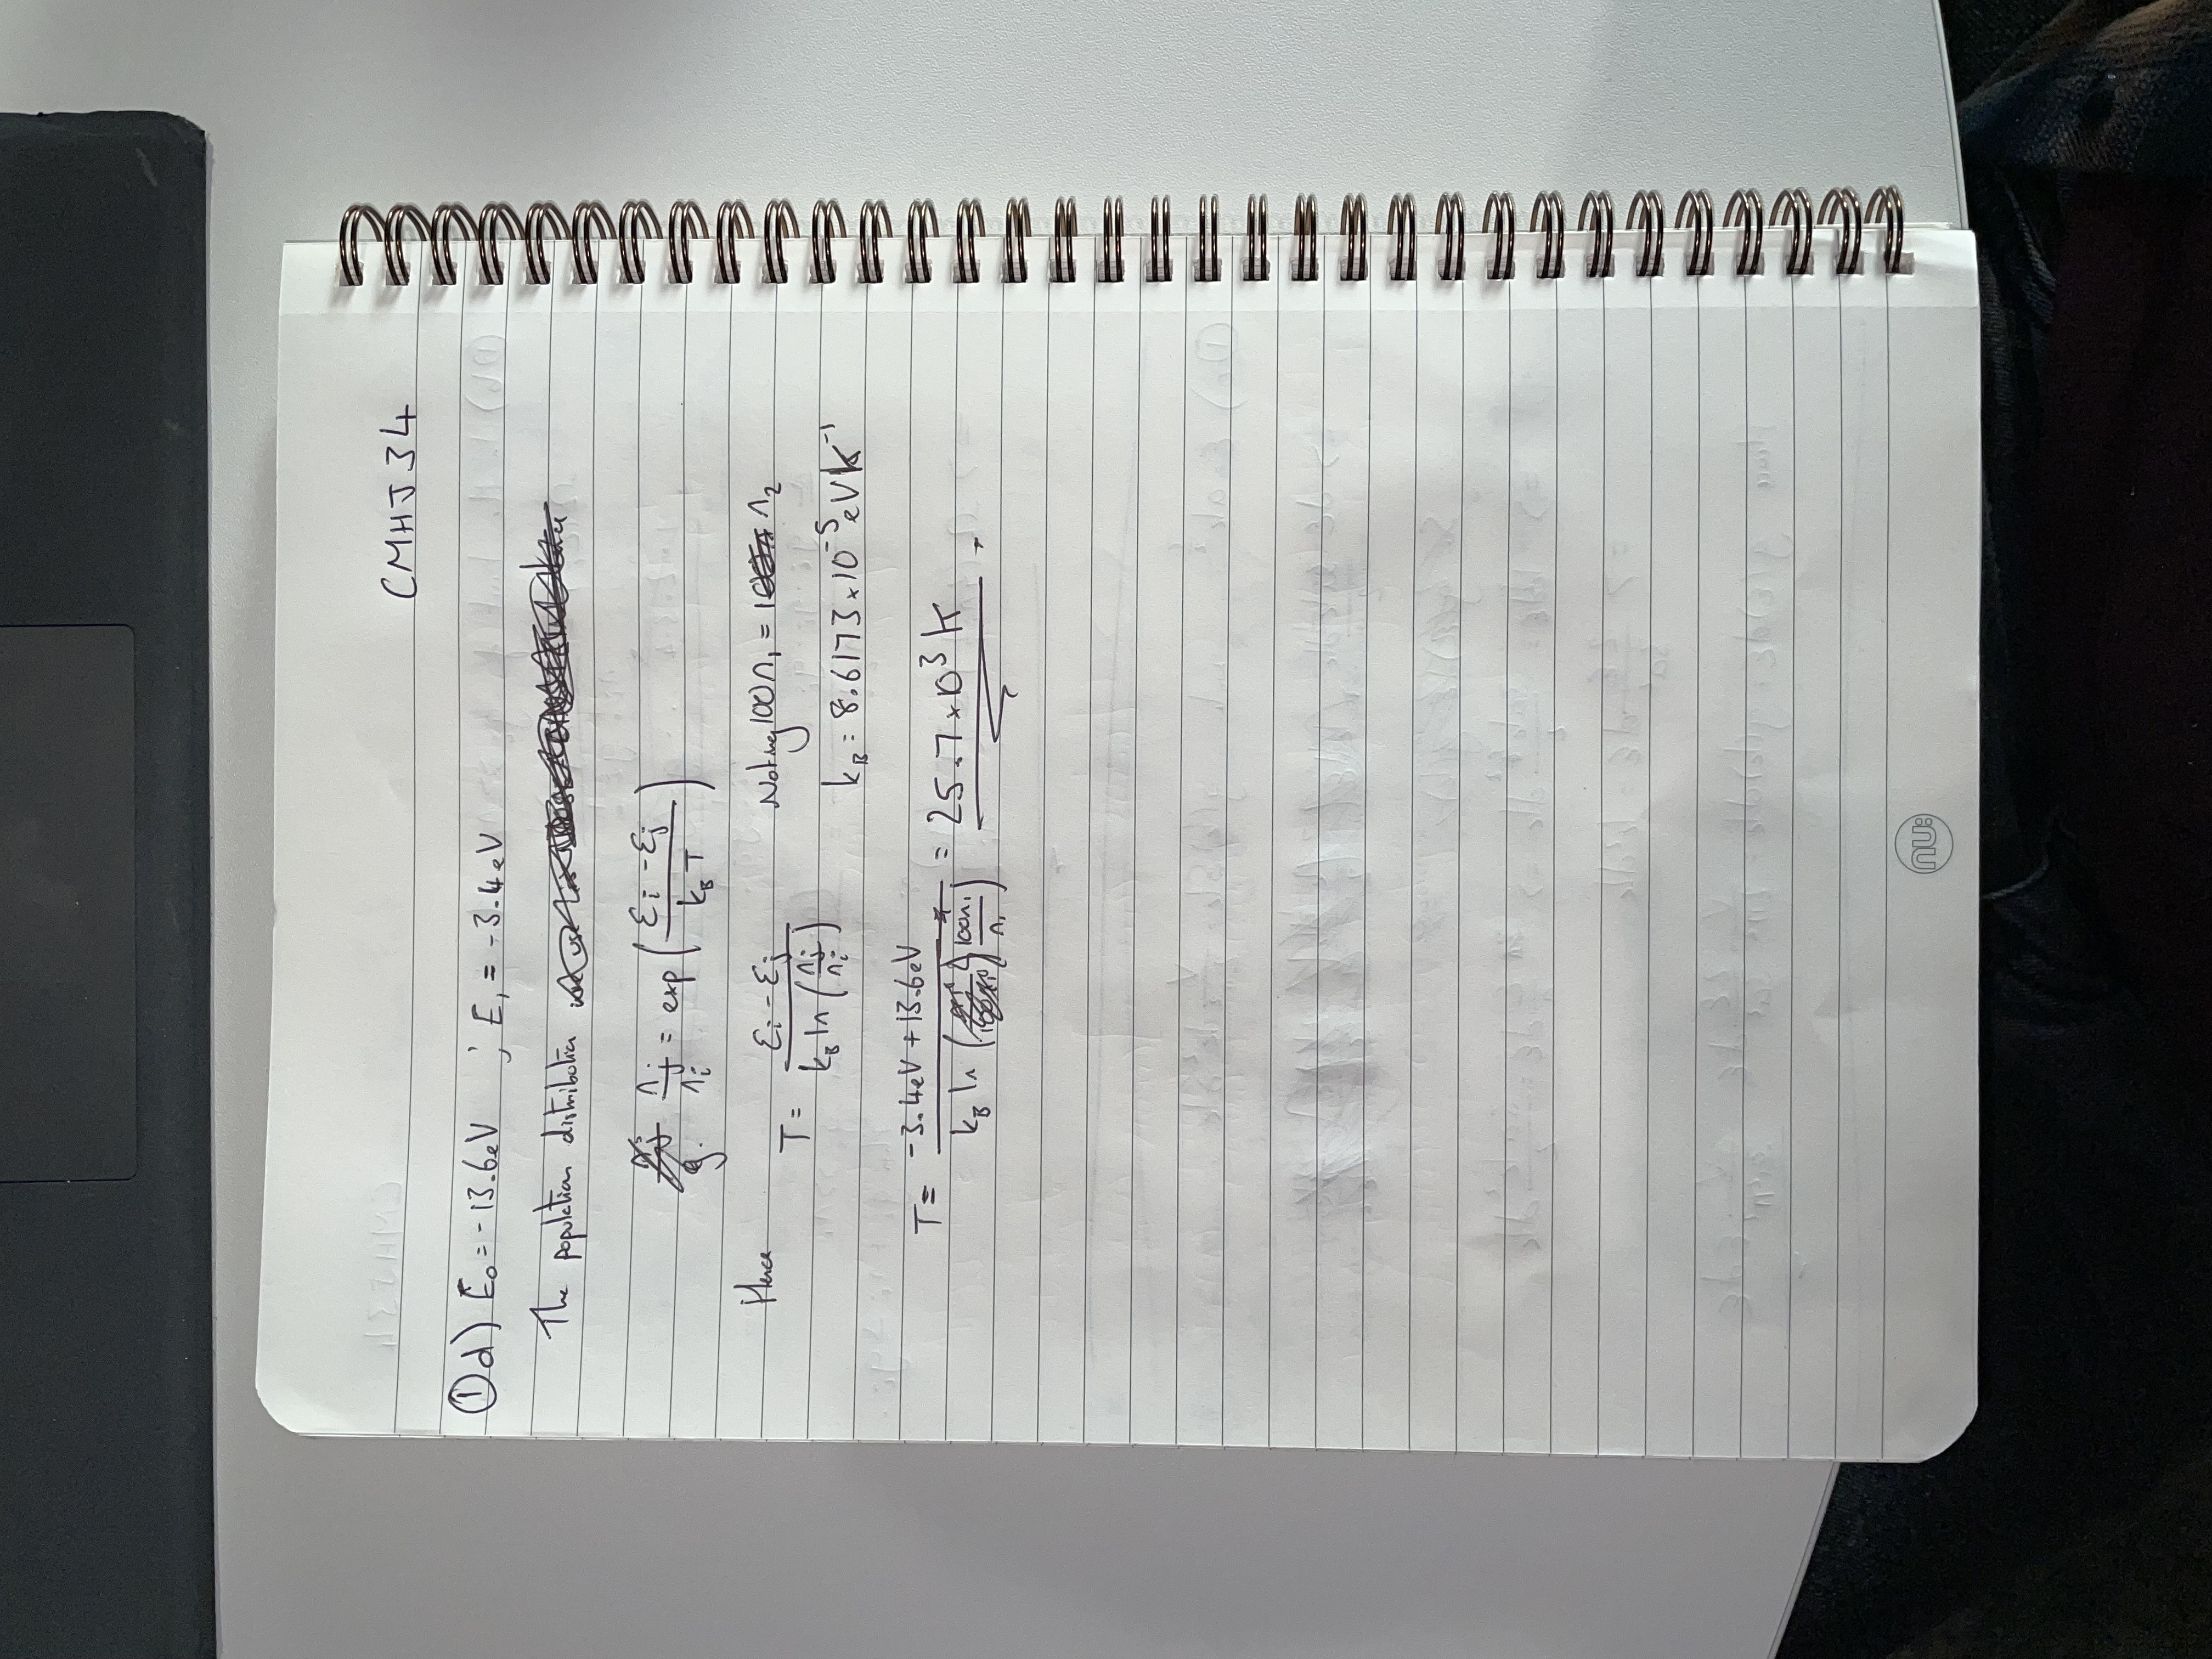 CMHJ34
① d) E₀ = -13.6eV ; E₁ = -3.4eV
The population distribution
nⱼ/nᵢ = exp((εᵢ - εⱼ)/(k_B T))
Hence T = (εᵢ - εⱼ)/(k_B ln(nⱼ/nᵢ)) Noting 100n₁ = n₂
k_B = 8.6173×10⁻⁵ eVK⁻¹
T = (-3.4eV + 13.6eV)/(k_B ln(100n₁/n₁)) = 25.7×10³ K.
nu: